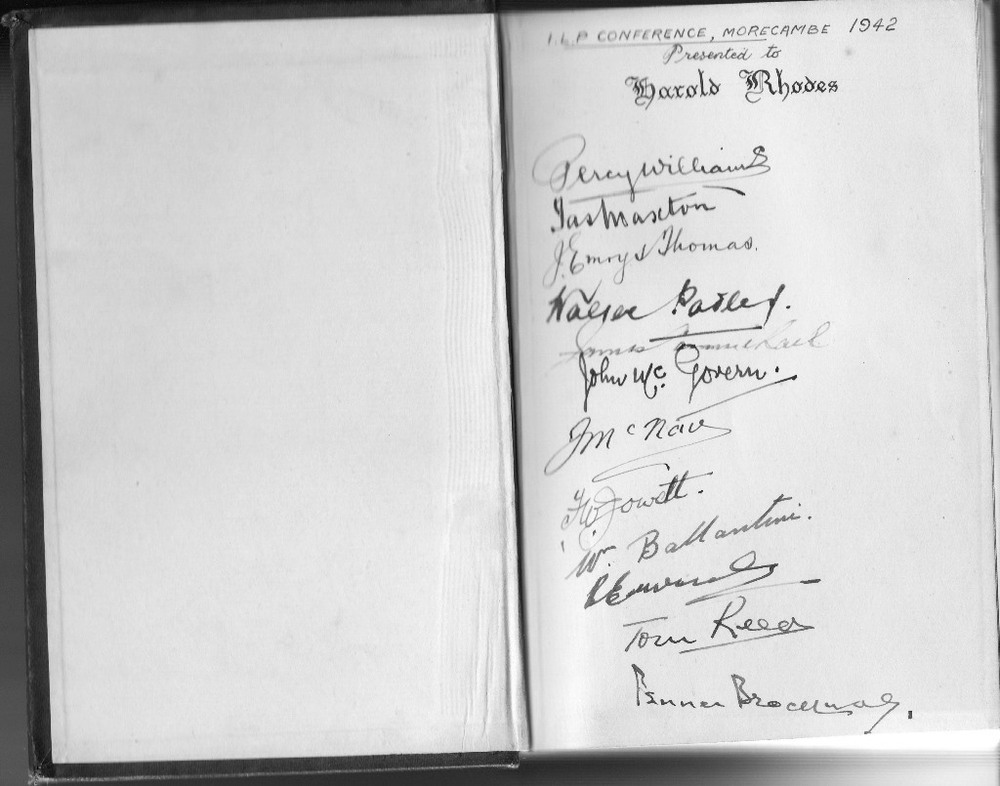 I.L.P CONFERENCE, MORECAMBE 1942
Presented to
Harold Rhodes
Percy Williams
Jas Maxton
J. Emrys Thomas.
Walter Padley.
James Carmichael
John Mc Govern.
J Mc Nair
F W Jowett.
W. Ballantine.
R Edwards
Tom Reed
Fenner Brockway.